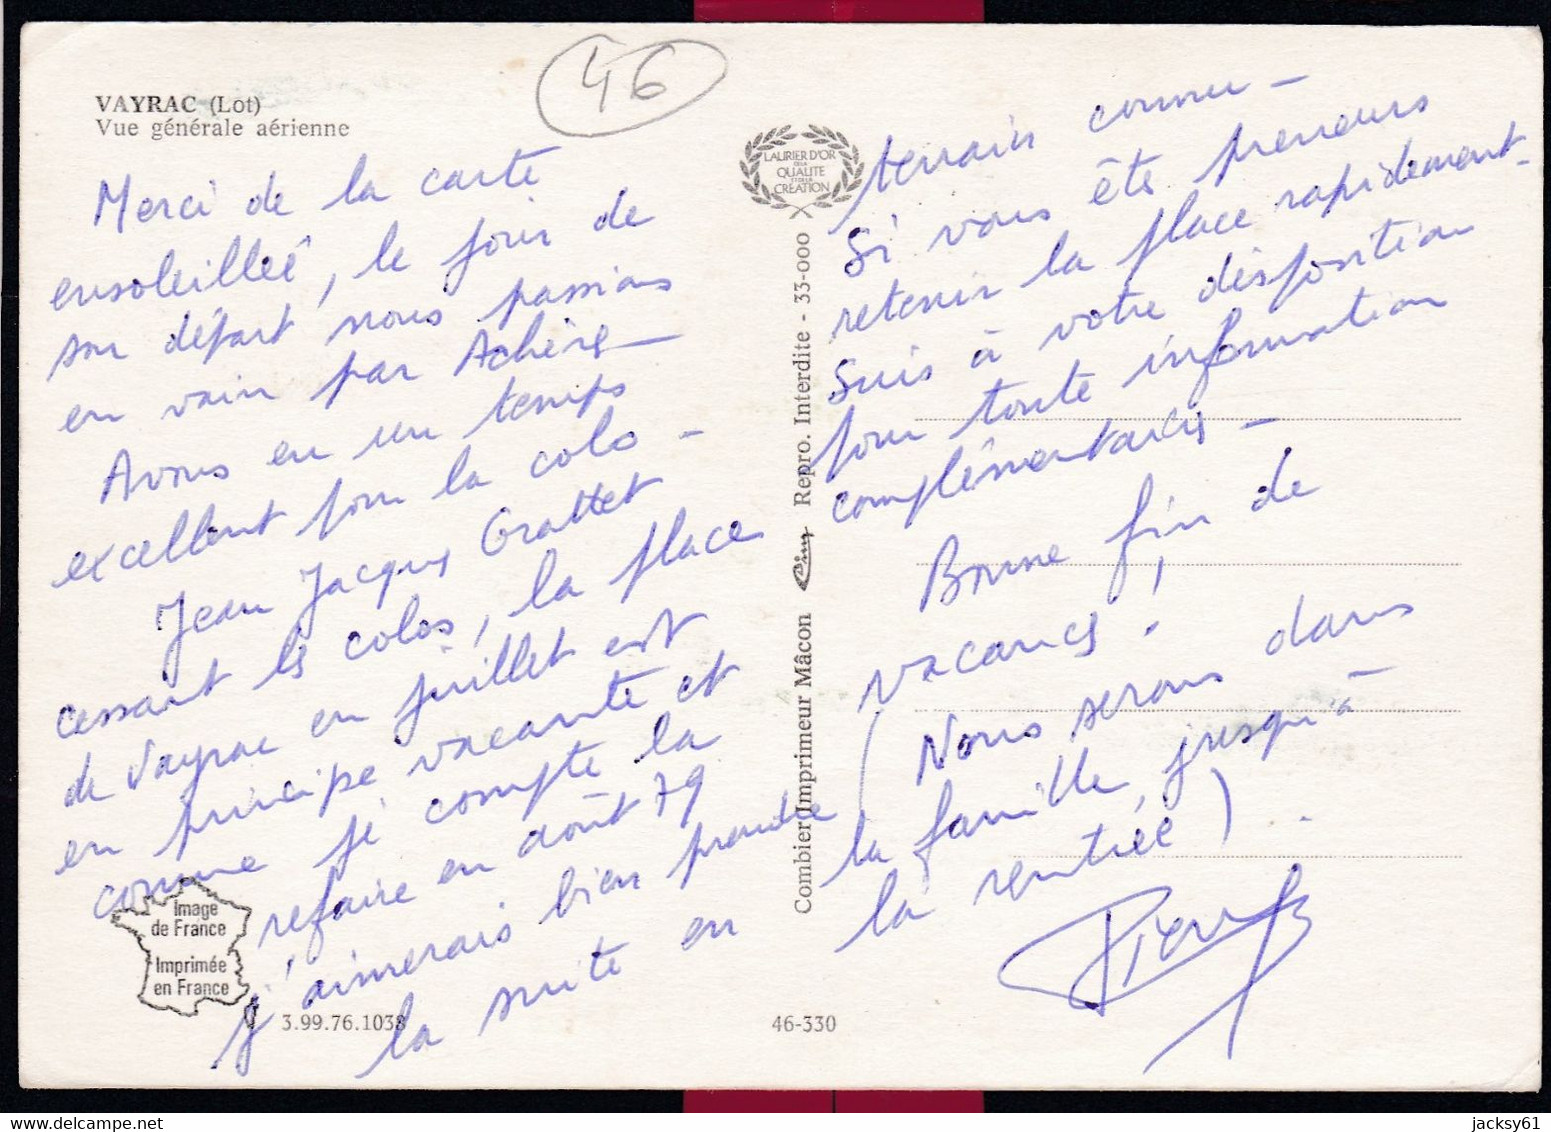 46
VAYRAC (Lot)
Vue générale aérienne
Merci de la carte
ensoleilleé, le jour de
son départ nous passions
en vain par Achères_
Avons eu un temps
excellent pour la colo -
Jean Jacques Grattet
cessant les colos, la place
de Vayrac en juillet est
en principe vacante et
comme je compte la
refaire en août 79
j'aimerais bien prendre
la suite en
terrain connu -
Si vous êtes preneurs
retenir la place rapidement -
Suis à votre disposition
pour toute information
complémentaires -
Bonne fin de
vacances !
(Nous serons dans
la famille, jusqu'à
la rentrée) .
Pierre
LAURIER D'OR
DE LA
QUALITÉ
ET DE LA
CRÉATION
Combier Imprimeur Mâcon Cim Repro. Interdite - 33-000
Image
de France
Imprimée
en France
3.99.76.1038
46-330
jacksy61